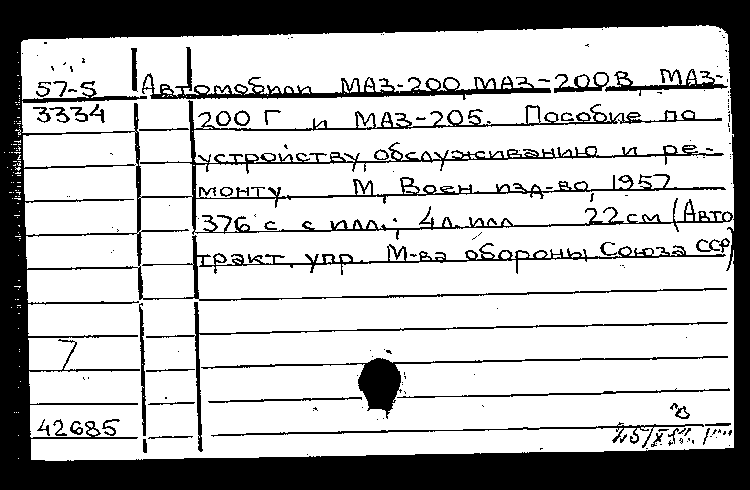 57-5 Автомобили МАЗ-200, МАЗ-200В, МАЗ-
3334 200 Г и МАЗ-205. Пособие по
устройству, обслуживанию и ре-
монту. М, Воен. изд-во, 1957.
376 с. с илл.; 4 л. илл 22 см (Авто
тракт. упр. М-ва обороны Союза ССР)
7
42685